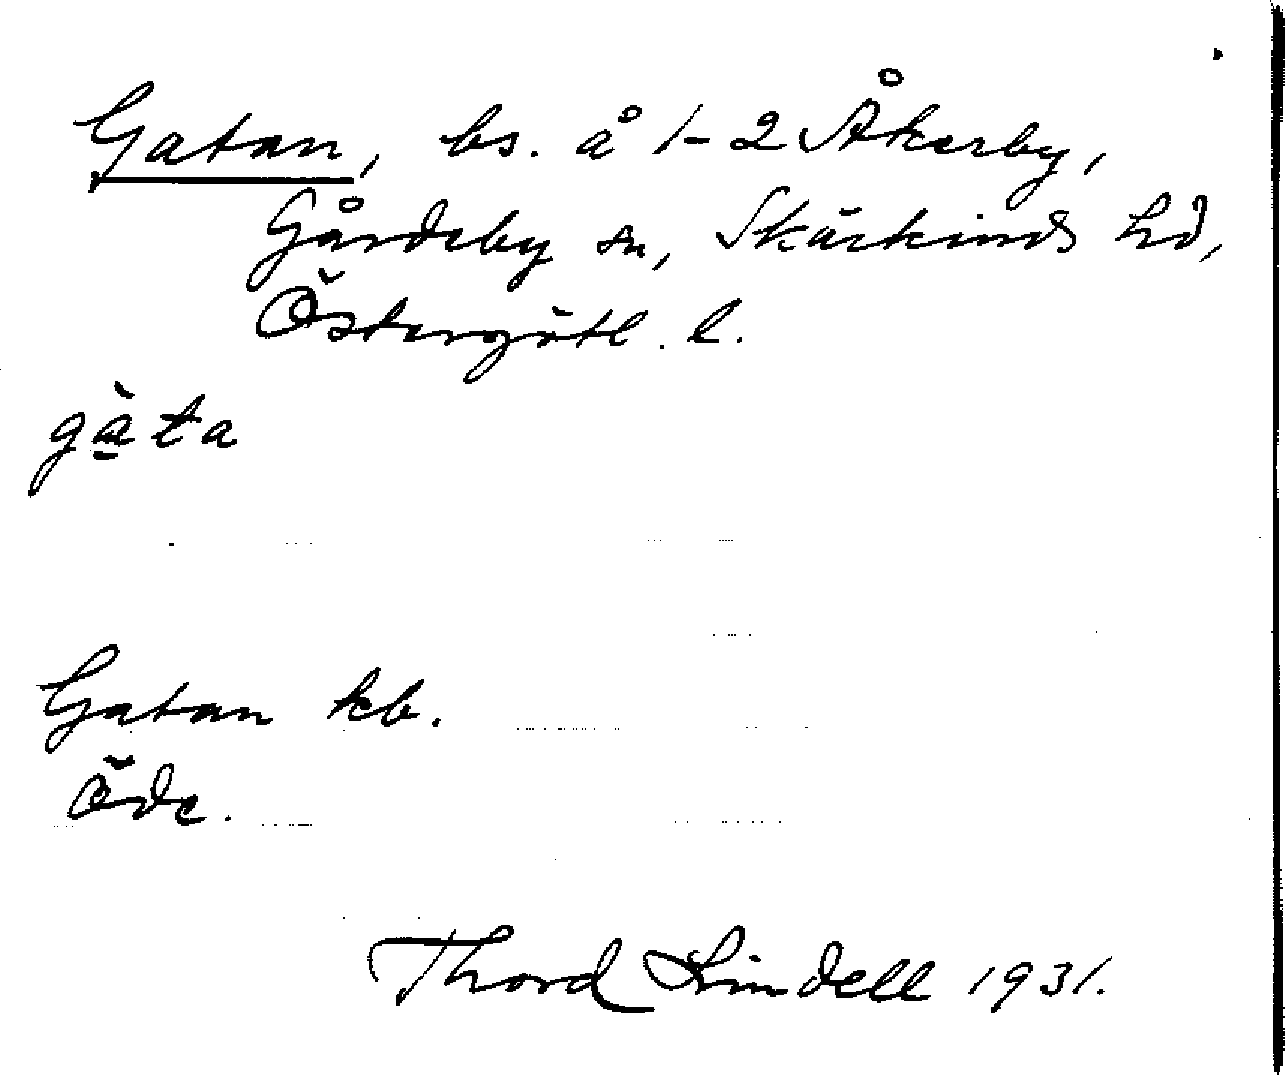 Gatan, bs. å 1-2 Åkerby,
Gårdeby sn, Skärkinds hd,
Östergötl. l.
gàta
Gatan kb.
Öde.
Thord Lindell 1931.